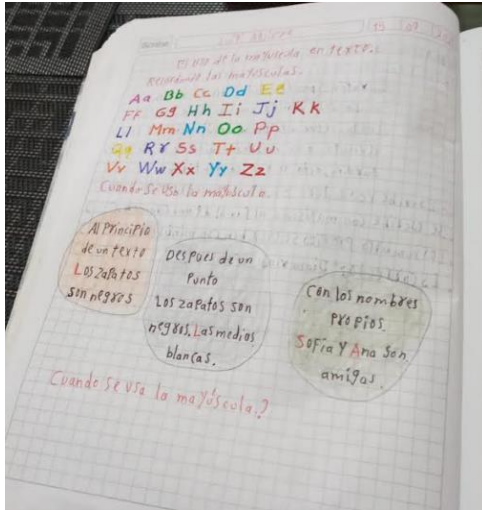 Scribe
19 07
El uso de la mayúscula en texto.
Recordando las mayúsculas.
Aa Bb Cc Dd Ee
Ff Gg Hh Ii Jj Kk
Ll Mm Nn Oo Pp
Qq Rr Ss Tt Uu
Vv Ww Xx Yy Zz
Cuando se usa la mayúscula.
Al Principio
de un texto
Los zapatos
son negros
Despues de un
Punto
Los zapatos son
negros. Las medias
blancas.
Con los nombres
propios.
Sofia y Ana son
amigas
Cuando se usa la mayúscula?